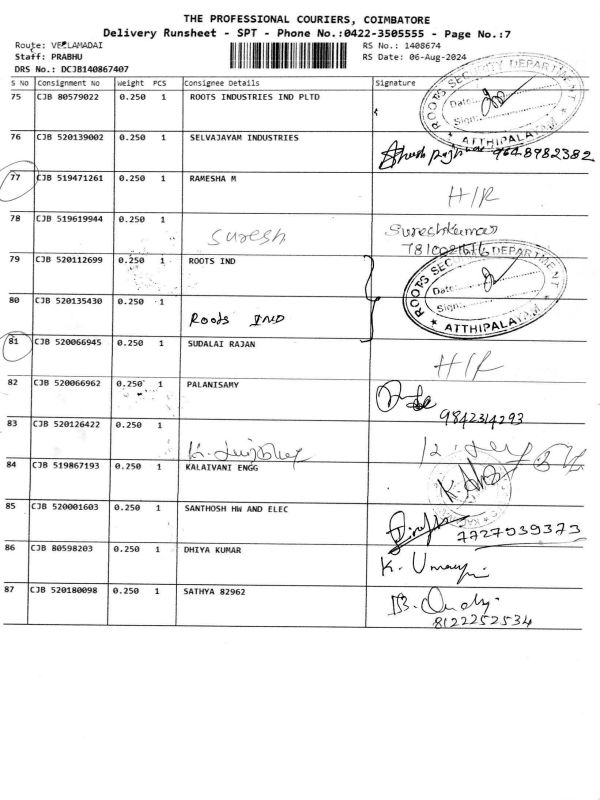 THE PROFESSIONAL COURIERS, COIMBATORE
Delivery Runsheet - SPT - Phone No.:0422-3505555 - Page No.:7
Route: VEELAMADAI RS No.: 1408674
Staff: PRABHU RS Date: 06-Aug-2024
DRS No.: DCJB140867407
S No Consignment No Weight PCS Consignee Details Signature
75 CJB 80579022 0.250 1 ROOTS INDUSTRIES IND PLTD
ROOTS SECURITY DEPARTMENT
Date:
Sign:
★ ATTHIPALAYAM ★
76 CJB 520139002 0.250 1 SELVAJAYAM INDUSTRIES
9648982382
77 CJB 519471261 0.250 1 RAMESHA M
H/R
78 CJB 519619944 0.250 1 Suresh Sureshkumar
79 CJB 520112699 0.250 1 ROOTS IND
ROOTS SECURITY DEPARTMENT
Date:
Sign:
★ ATTHIPALAYAM ★
80 CJB 520135430 0.250 1 Roots IND
81 CJB 520066945 0.250 1 SUDALAI RAJAN
H/R
82 CJB 520066962 0.250 1 PALANISAMY
9842314293
83 CJB 520126422 0.250 1
84 CJB 519867193 0.250 1 KALAIVANI ENGG
85 CJB 520001603 0.250 1 SANTHOSH HW AND ELEC
7727039373
86 CJB 80598203 0.250 1 DHIYA KUMAR
87 CJB 520180098 0.250 1 SATHYA 82962
8122252534